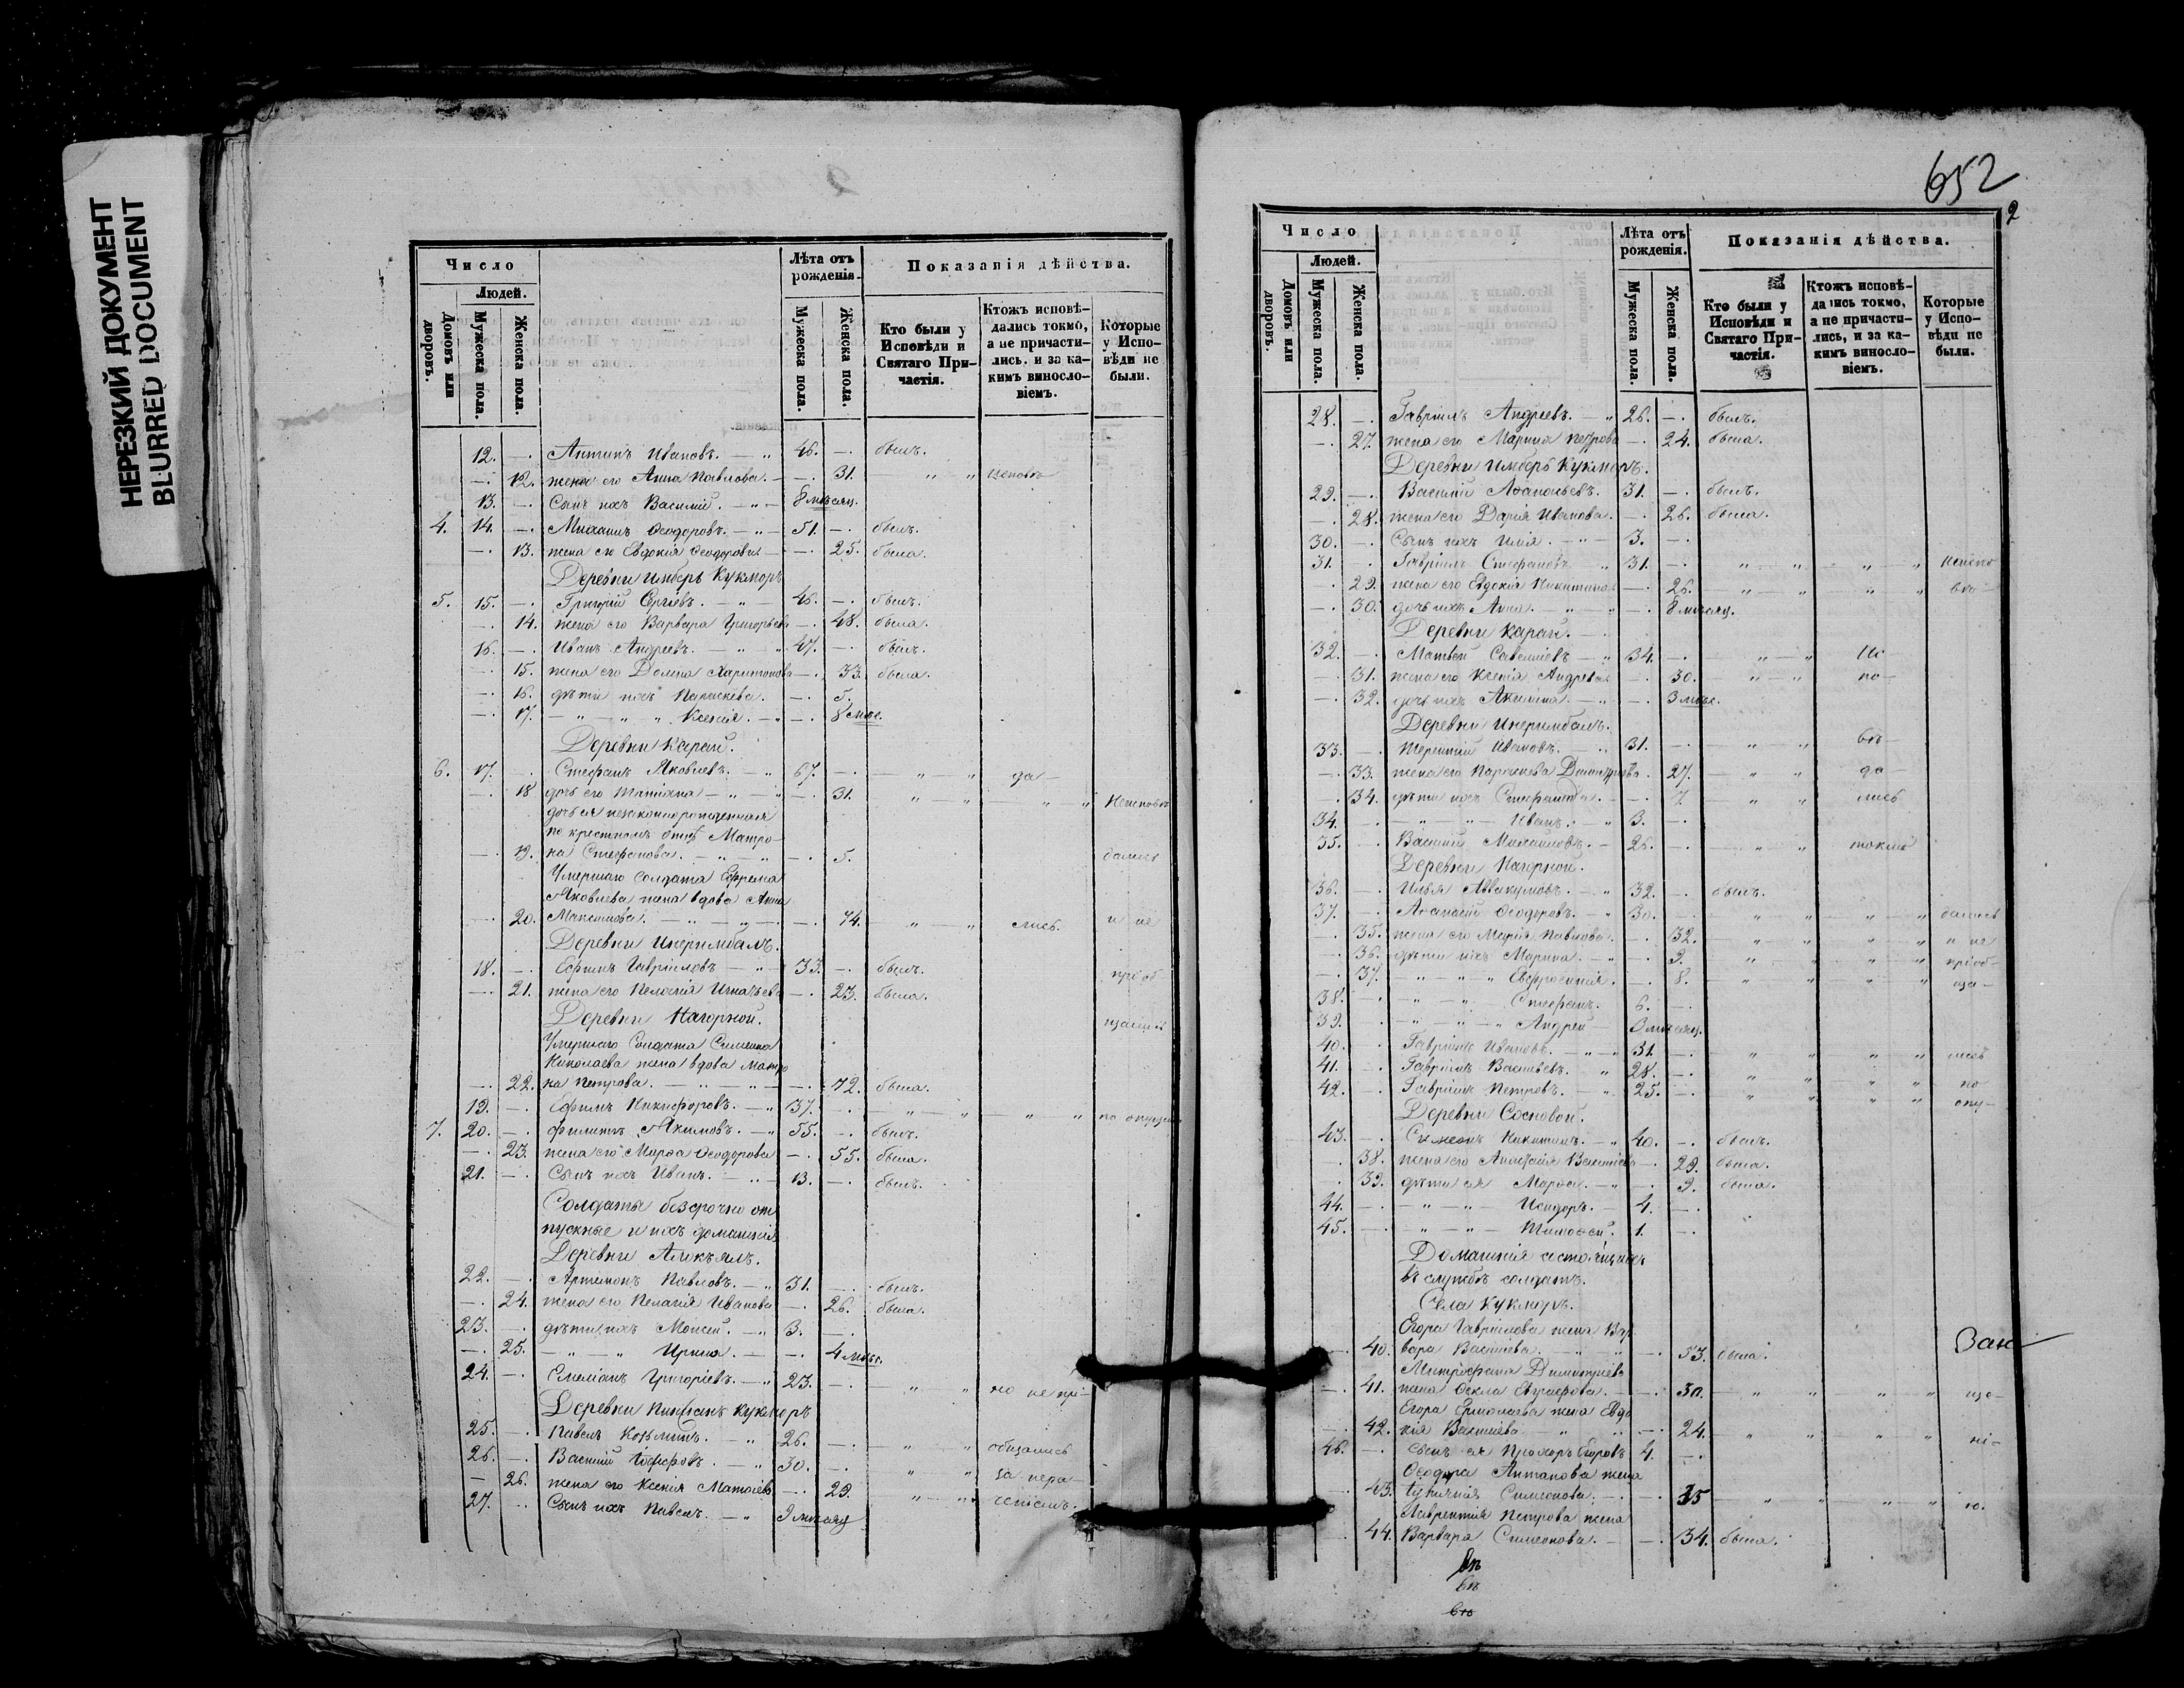 НЕРЕЗКИЙ ДОКУМЕНТ
BLURRED DOCUMENT
Число
Людей.
Домовъ или дворовъ.
Мужеска пола.
Женска пола.
Лѣта отъ рожденія.
Мужеска пола.
Женска пола.
Показанія дѣйства.
Кто были у Исповѣди и Святаго Причастія.
Ктожъ исповѣдались токмо, а не причастились, и за какимъ винословіемъ.
Которые у Исповѣди не были.
12. —. Антипъ Ивановъ. — 46. —. былъ.
—. 12. жена его Анна Павлова. —. 31. " " исповѣ
13. —. Сынъ ихъ Василій. — 8 мѣсяц.
4. 14. —. Михаилъ Ѳеодоровъ. — 51. —. былъ.
—. 13. жена его Евдокія Ѳеодорова —. 25. была.
Деревни Имберь Кукморъ
5. 15. —. Григорій Сергіевъ. — 46. —. былъ.
—. 14. жена его Варвара Григорьева —. 48. была.
16. —. Иванъ Андреевъ. — 47. —. былъ.
—. 15. жена его Домна Харитонова —. 33. была.
—. 16. дѣти ихъ Параскева. —. 5.
—. 17. — " — " Ксенія. —. 8 мѣс.
Деревни Карай.
6. 17. —. Стефанъ Яковлевъ. — 67. —. — " — " да —
—. 18 дочь его Татіана — —. 31. " " " " Неисповѣ
дочь ея незаконнорожденная
по крестномъ отцѣ Матро-
—. 19. на Стефанова. —. 5. дались
Умершаго солдата Ефрема
Яковлева жена вдова Анна
—. 20. Максимова. —. 74. " " лись. и не
Деревни Инеримбалъ.
18. —. Ефимъ Гавріиловъ — 33. —. былъ. пріоб
—. 21. жена его Пелагія Игнатьева —. 23. была.
Деревни Нагорной.
щались
Умершаго Солдата Симеона
Николаева жена вдова Матро
—. 22. на Петрова. —. 72. была.
19. —. Ефимъ Никифоровъ. — 37. —. " " " " по опущен
7. 20. —. Филиппъ Акимовъ. — 55. —. былъ.
—. 23. жена его Марѳа Ѳеодорова —. 55. была.
21. —. Сынъ ихъ Иванъ. — 13. —. былъ.
Солдаты безсрочно от
пускные и ихъ домашнія
Деревни
22. —. Артамонъ Павловъ. — 31. —. былъ.
—. 24. жена его Пелагія Иванова —. 26. была.
23. —. дѣти ихъ Моисей. — 3. —.
—. 25. — " — " Ирина. —. 4 мѣс.
24. —. Емеліанъ Григоріевъ. — 23. —. " " но не прі-
Деревни Кукморъ
25. —. Павелъ Козьминъ. " 26. —. " " общались
26. —. Василій — " 30. —. " " за нера-
— 26. жена его Ксенія Матвіева —. 29. " "
27. —. Сынъ ихъ Павелъ. — " 9 мѣсяц
652
2
Число
Людей.
Домовъ или дворовъ.
Мужеска пола.
Женска пола.
Лѣта отъ рожденія.
Мужеска пола.
Женска пола.
Показанія дѣйства.
Кто были у Исповѣди и Святаго Причастія.
Ктожъ исповѣдались токмо, а не причастились, и за какимъ винословіемъ.
Которые у Исповѣди не были.
28. —. Гавріилъ Андреевъ. — " 26. —. былъ.
—. 27. жена его Марина Петрова —. 24. была.
Деревни Имберь Кукморъ.
29. —. Василій Аѳанасьевъ. 31. —. былъ.
—. 28. жена его Дарія Иванова. —. 26. была.
30. —. Сынъ ихъ Илія. — " — 3. —.
31. . Гавріилъ Стефановъ " 31. —. " " " " неиспо
—. 29. жена его Евдокія Никитина —. 26. " " " " вѣ
—. 30. дочь ихъ Анна. —. 8 мѣсяц.
Деревни Карай.
32. —. Матвей Савеліевъ — " 34. —. " " Ис
—. 31. жена его Ксенія Андреева —. 30. " " по-
—. 32. дочь ихъ Акилина. —. 3 мѣс.
Деревни Инеримбалъ.
33. —. Терентій Ивановъ. — 31. —. " " вѣ-
—. 33. жена его Параскева Димитріева. 27. " " да-
—. 34. дѣти ихъ —. 7. " " лись
34. —. — " — " — Иванъ. — " 3. —.
35. —. Василій Михаиловъ. — 26. —. " " токмо
Деревни Нагорной.
36. —. Илья Аввакумовъ. — " 32. —. былъ.
37. —. Аѳанасій Ѳеодоровъ. — " 30. —. " " " " дались
—. 35. жена его Марія Павлова. —. 32. " " " " и не
—. 36. дѣти ихъ Марина. —. 9. " " " " пріоб-
—. 37. — " — " Евфросинія. —. 8. " " " " ща-
38. —. — " — " Стефанъ. 6. —.
39. . — " — " — Андрей — 3 мѣсяц.
40. —. Гавріилъ Ивановъ. — " 31. —. " " " " лись
41. —. Гавріилъ Васильевъ. " 28. —. " " " " по
42. —. Гавріилъ Петровъ. — " 25. —. " " " " опу-
Деревни Сосновой.
43. —. Симеонъ Никитинъ. — " 40. —. былъ.
—. 38. жена его Анастасія —. 29. была.
. 39. дѣти ея Марѳа. —. 9. была.
44. —. — " — " — Исидоръ. — 4. —.
45. —. — " — " — Тимоѳей. 1. —.
Домашнія состоящихъ
въ службѣ солдатъ.
Села Кукморъ.
Егора Гавріилова жена Вар
—. 40. вара Васильева. —. 53. была.
Зак
Митрофана Димитріева
—. 41. жена Ѳекла —. 30. " " " " ще-
Егора Ермолаева жена Евдо
—. 42. кія Васильева " " —. 24. " " " " ні-
46. —. Сынъ ея Прохоръ Егоровъ 4. —.
Ѳеодора Антипова жена
. 43. Симеонова. —. 35 " " " " ю.
Лаврентія Петрова жена
. 44. Варвара Симеонова. —. 34. была.
въ
въ
въ